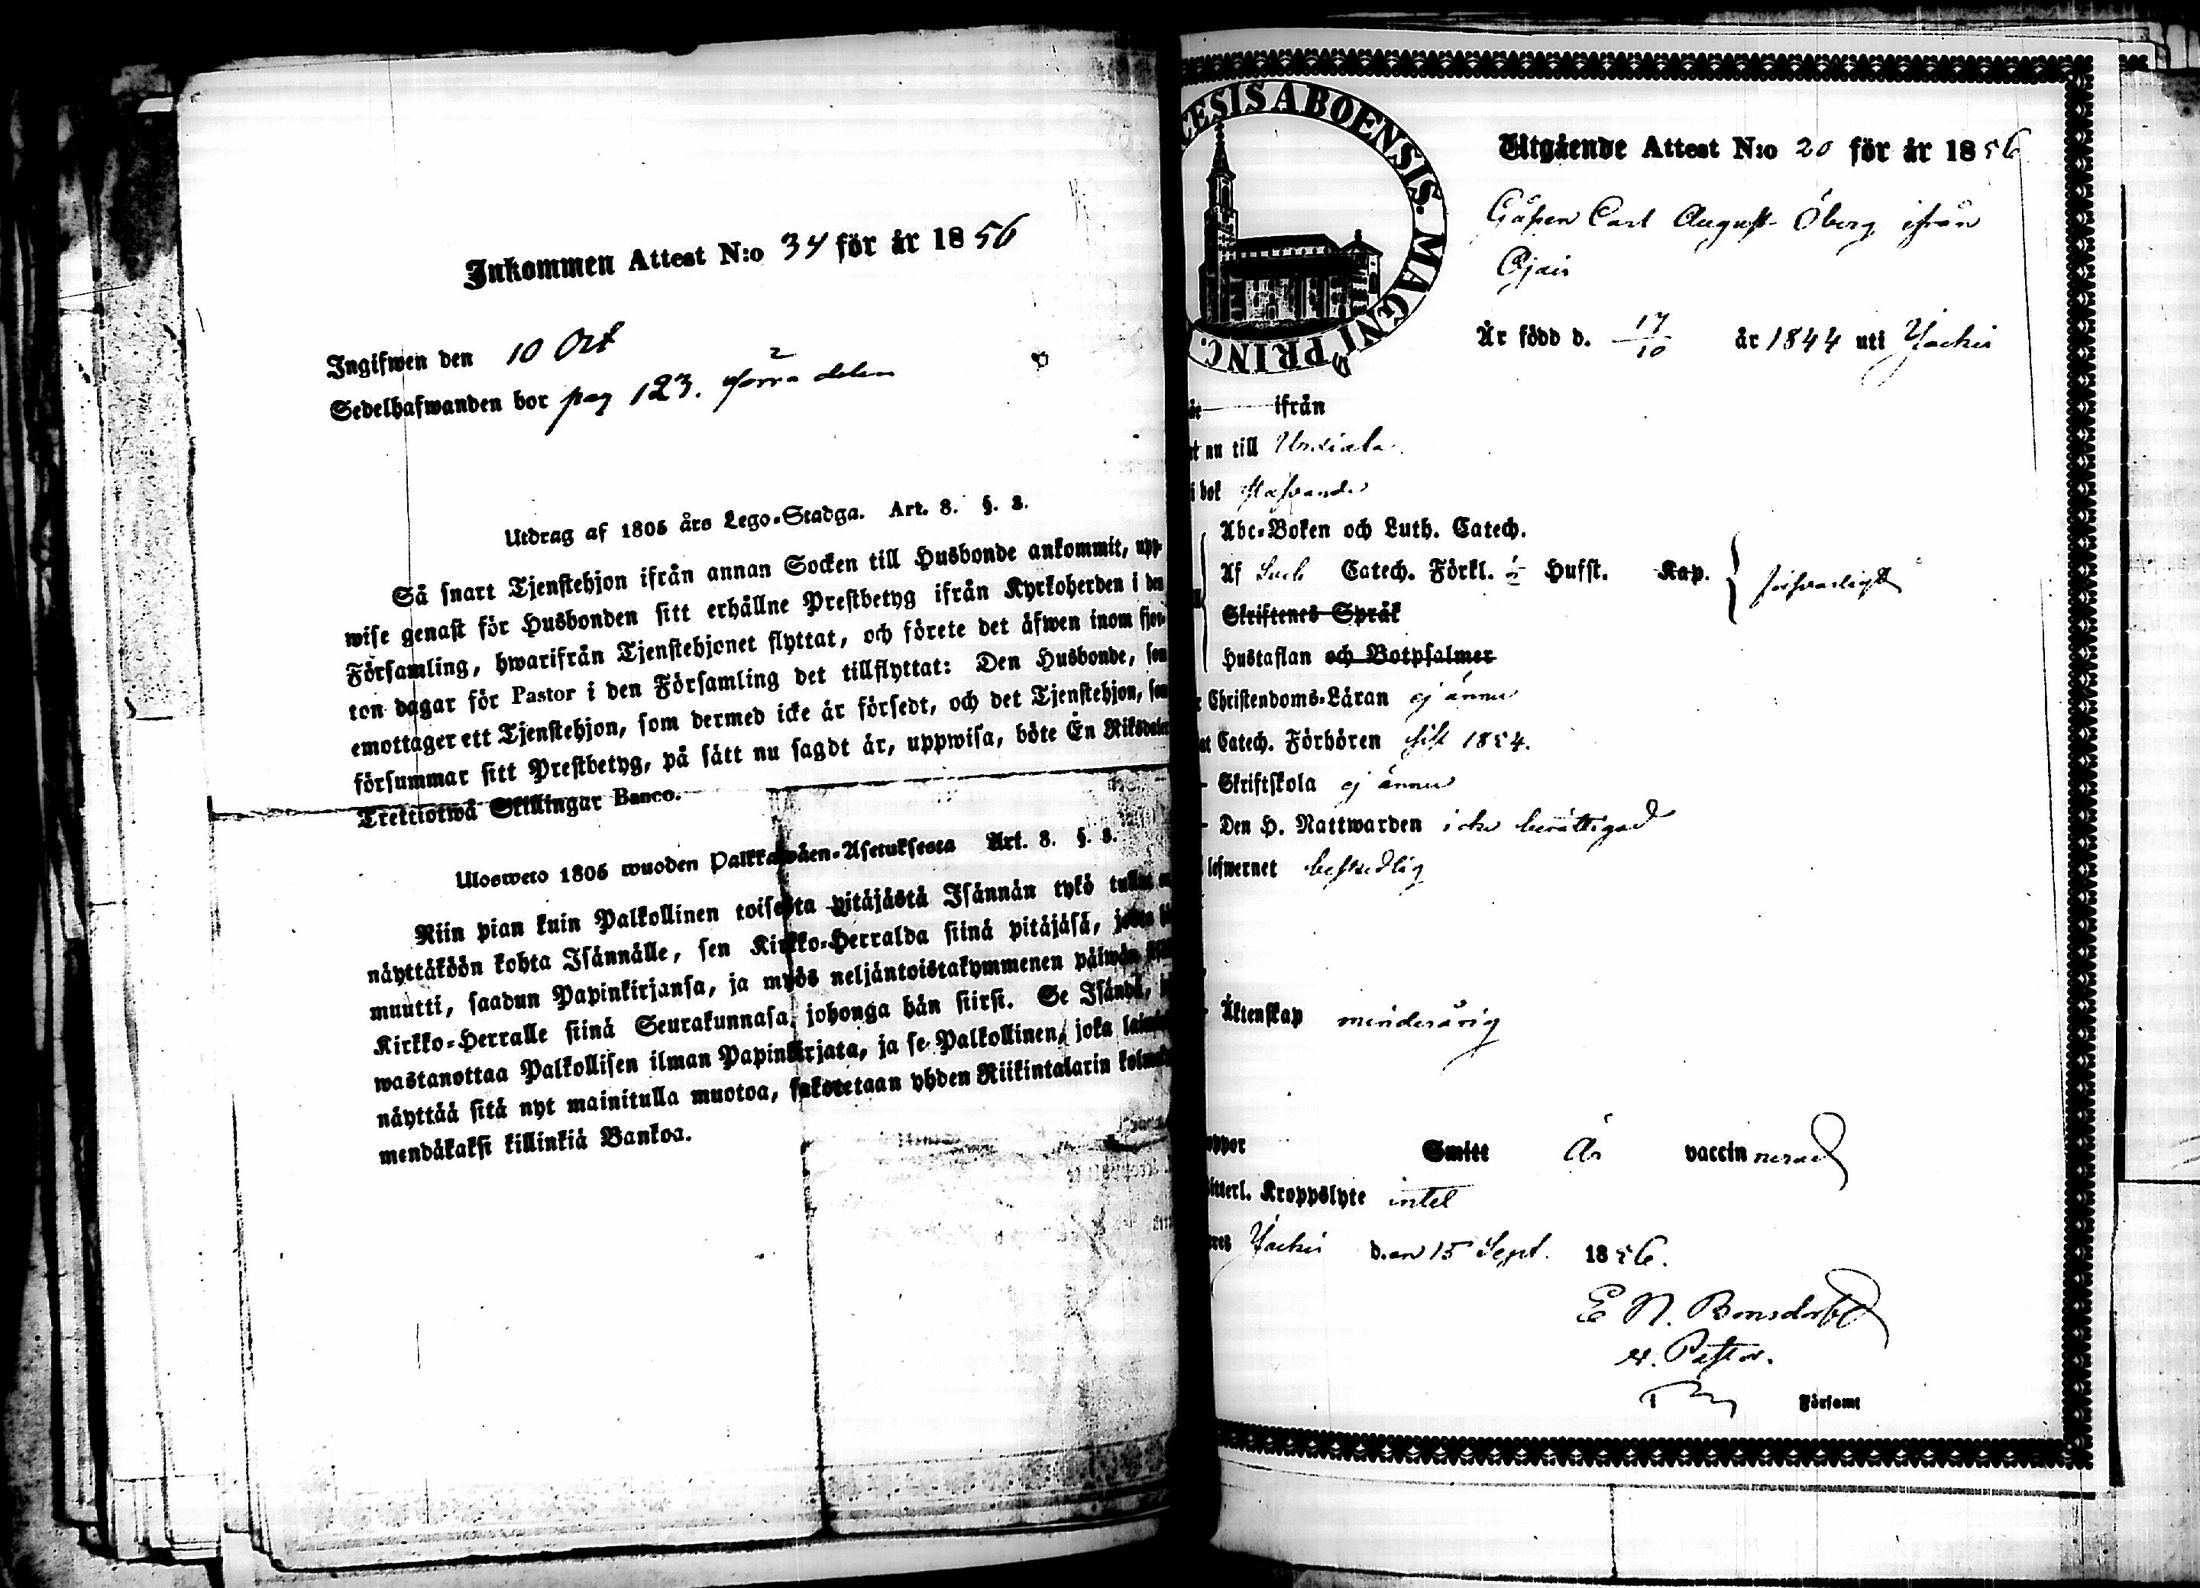 Inkommen Attest N:o 34 för år 1856
Ingifwen den 10 Oct
Sedelhafwanden bor pag 123. förra delen
Utdrag af 1805 års Lego-Stadga. Art. 8. §. 3.
Så snart Tjenstehjon ifrån annan Socken till Husbonde ankommit, upp-
wise genast för Husbonden sitt erhållne Prestbetyg ifrån Kyrkoherden i den
Församling, hwarifrån Tjenstehjonet flyttat, och förete det äfwen inom fjor-
ton dagar för Pastor i den Församling det tillflyttat: Den Husbonde, som
emottager ett Tjenstehjon, som dermed icke är försedt, och det Tjenstehjon, som
försummar sitt Prestbetyg, på sätt nu sagdt är, uppwisa, böte En Riksdaler
Trettiotwå Skillingar Banco.
Ulosweto 1805 wuoden Palkkawäen-Asetuksesta Art. 8. §. 3.
Niin pian kuin Palkollinen toisesta pitäjästä Isännän tykö tullut on
näyttäköön kohta Isännälle, sen Kirkko-Herralda siinä pitäjäsä, josta
muutti, saadun Papinkirjansa, ja myös neljäntoistakymmenen päiwän
Kirkko-Herralle siinä Seurakunnasa, johonga hän siirsi. Se Isändä,
wastanottaa Palkollisen ilman Papinkirjata, ja se Palkollinen, joka
näyttää sitä nyt mainitulla muotoa, sakotetaan yhden Riikintalarin kolme
mendäkaksi killinkiä Bankoa.
CESIS ABOENSIS. MAGNI PRINC.
Utgående Attest N:o 20 för år 1856
Gåssen Carl August Öberg ifrån
Ojais
Är född d. 17/10 år 1844 uti Jockis
ifrån
nu till Urdiala
bok
Abc-Boken och Luth. Catech.
Af Catech. Förkl. Hufst. Kap. } försvarligt
Skriftenes Språk
Hustaflan och Botpsalmer
Christendoms-Läran ej ännu
Catech. Förhören sist 1854.
Skriftskola ej ännu
Den H. Nattwarden icke berättigad
lefwernet beskedlig
Äktenskap minderårig
Smitt Är vaccinnerad
Kroppslyte intet
Jockis d.en 15 Sept. 1856.
E N. Bonsdorff
Pastor.
Församl